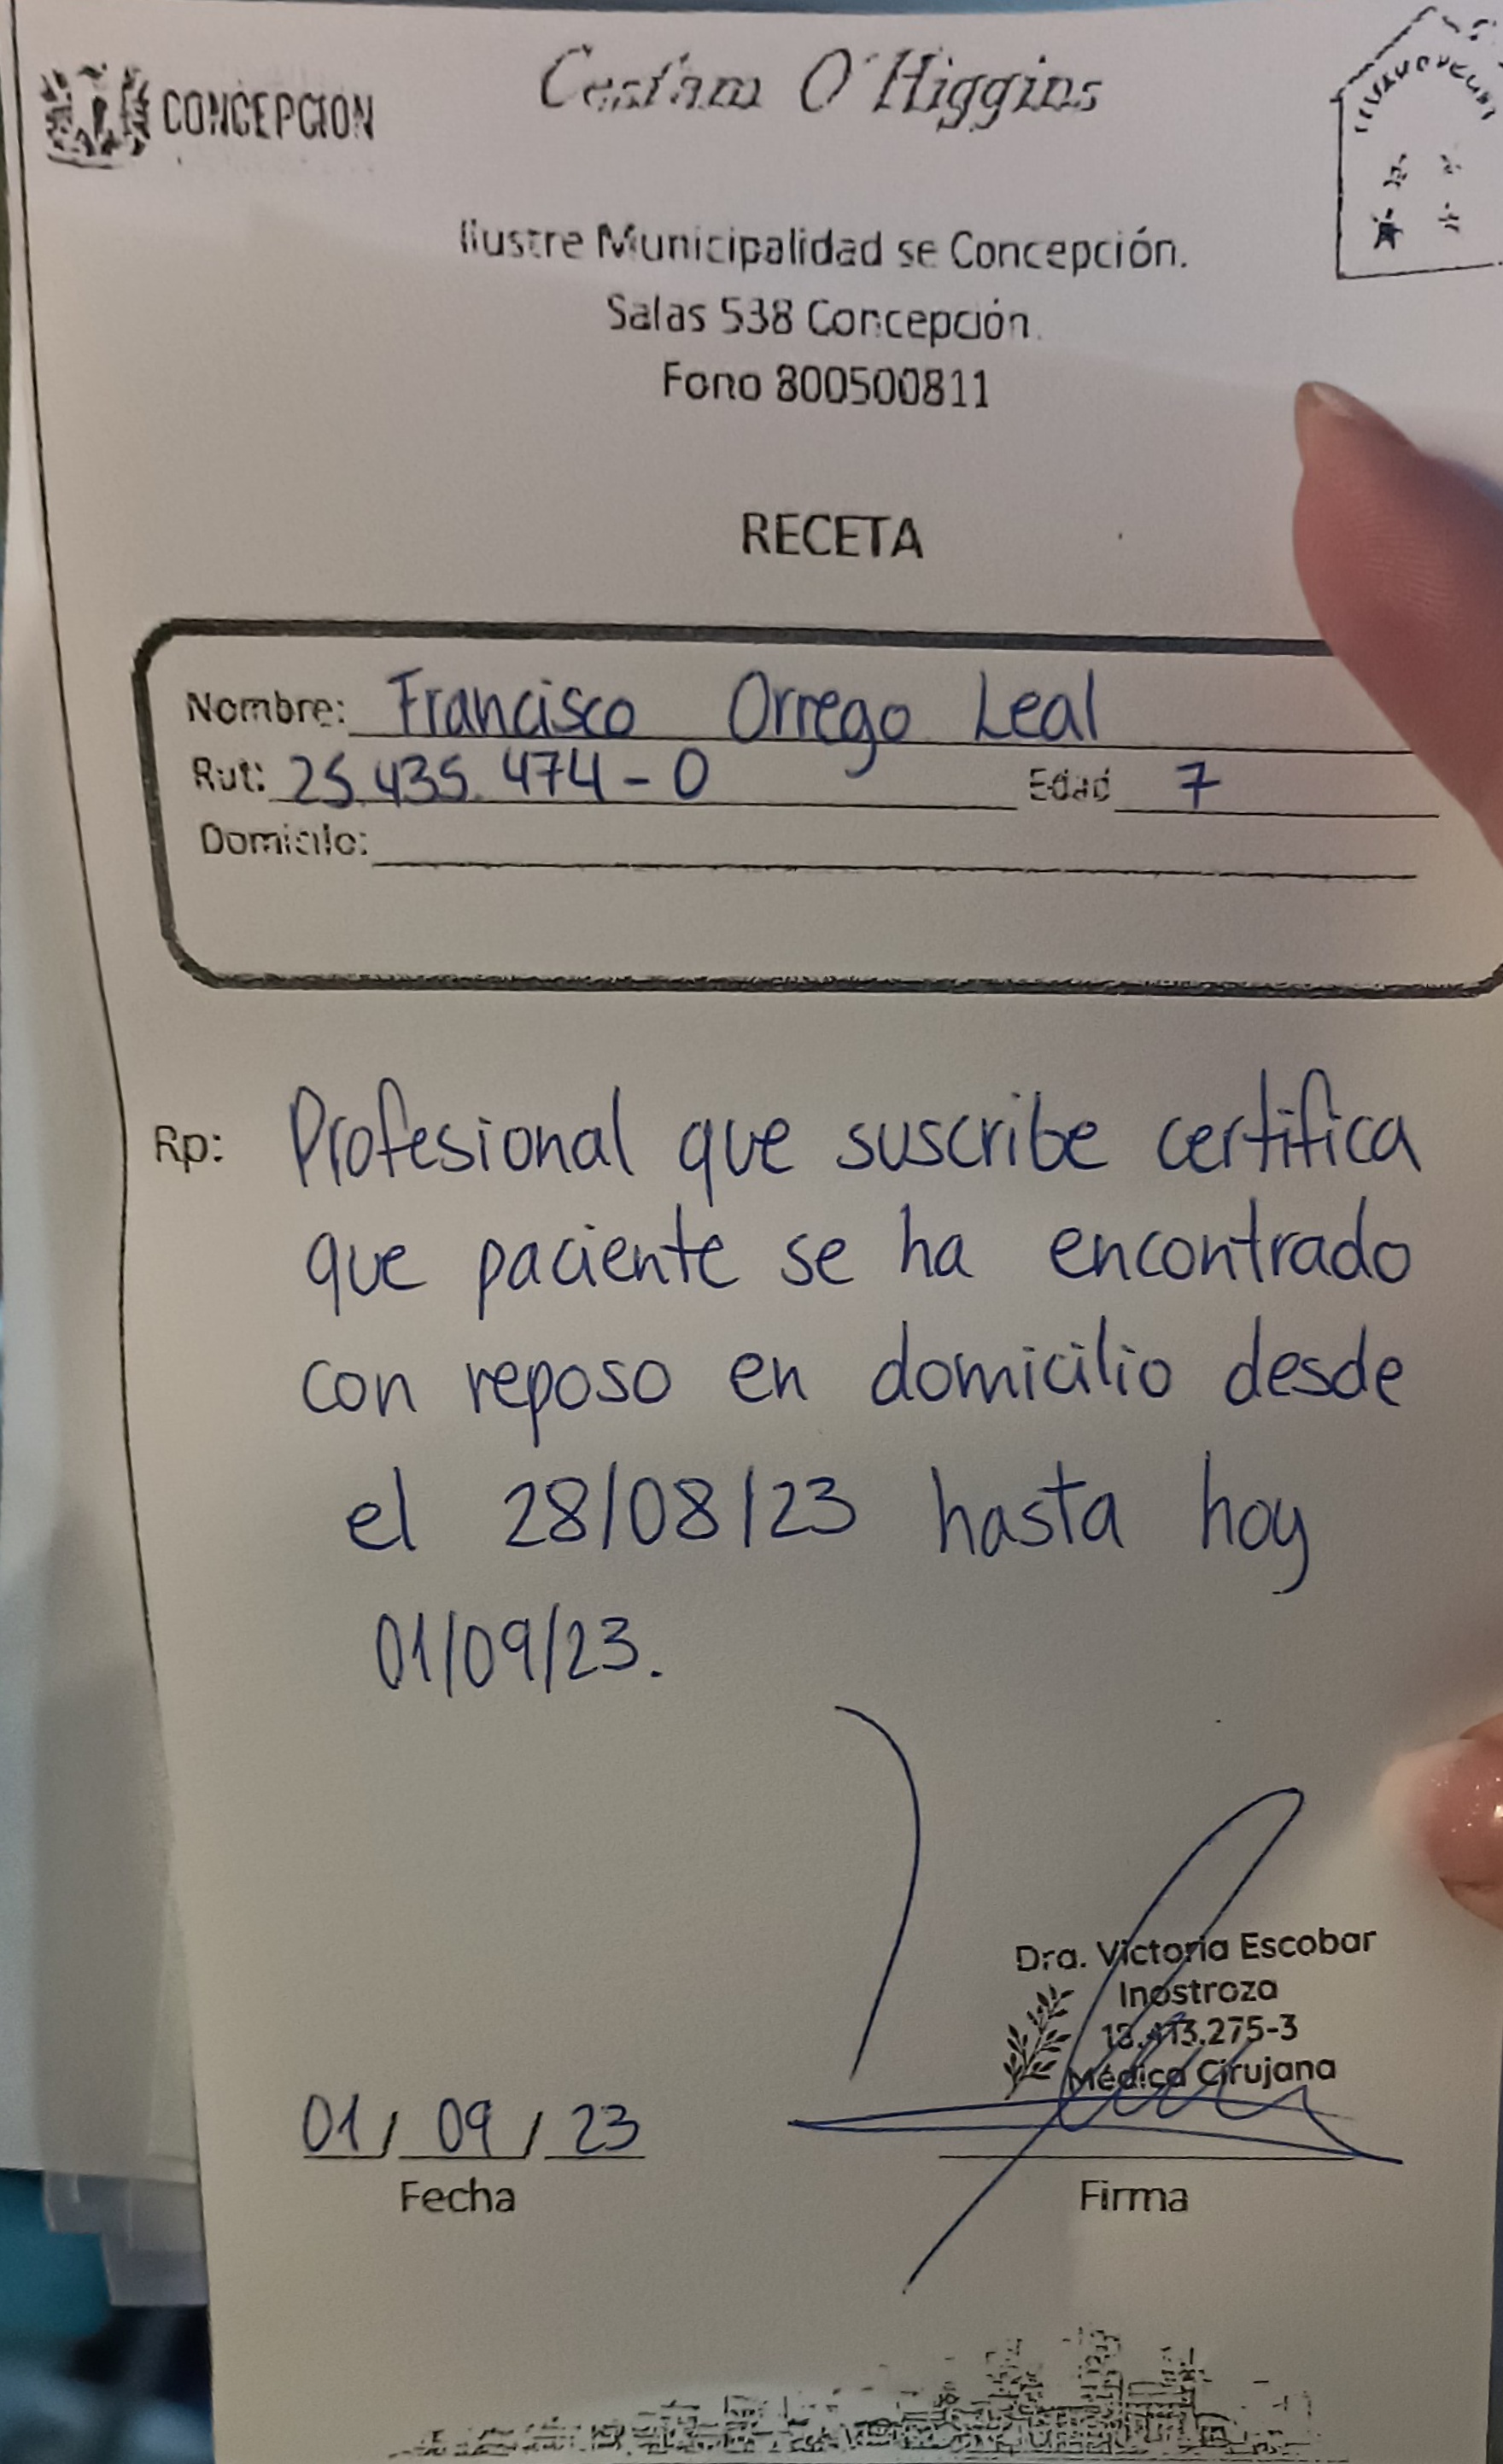 CONCEPCION
Cesfam O'Higgins
Ilustre Municipalidad se Concepción.
Salas 538 Concepción.
Fono 800500811
RECETA
Nombre: Francisco Orrego Leal
Rut: 25.435.474-0 Edad 7
Domicilo:
Rp: Profesional que suscribe certifica
que paciente se ha encontrado
con reposo en domicilio desde
el 28/08/23 hasta hoy
01/09/23.
Dra. Victoria Escobar
Inostroza
Médica Cirujana
01/09/23
Fecha
Firma